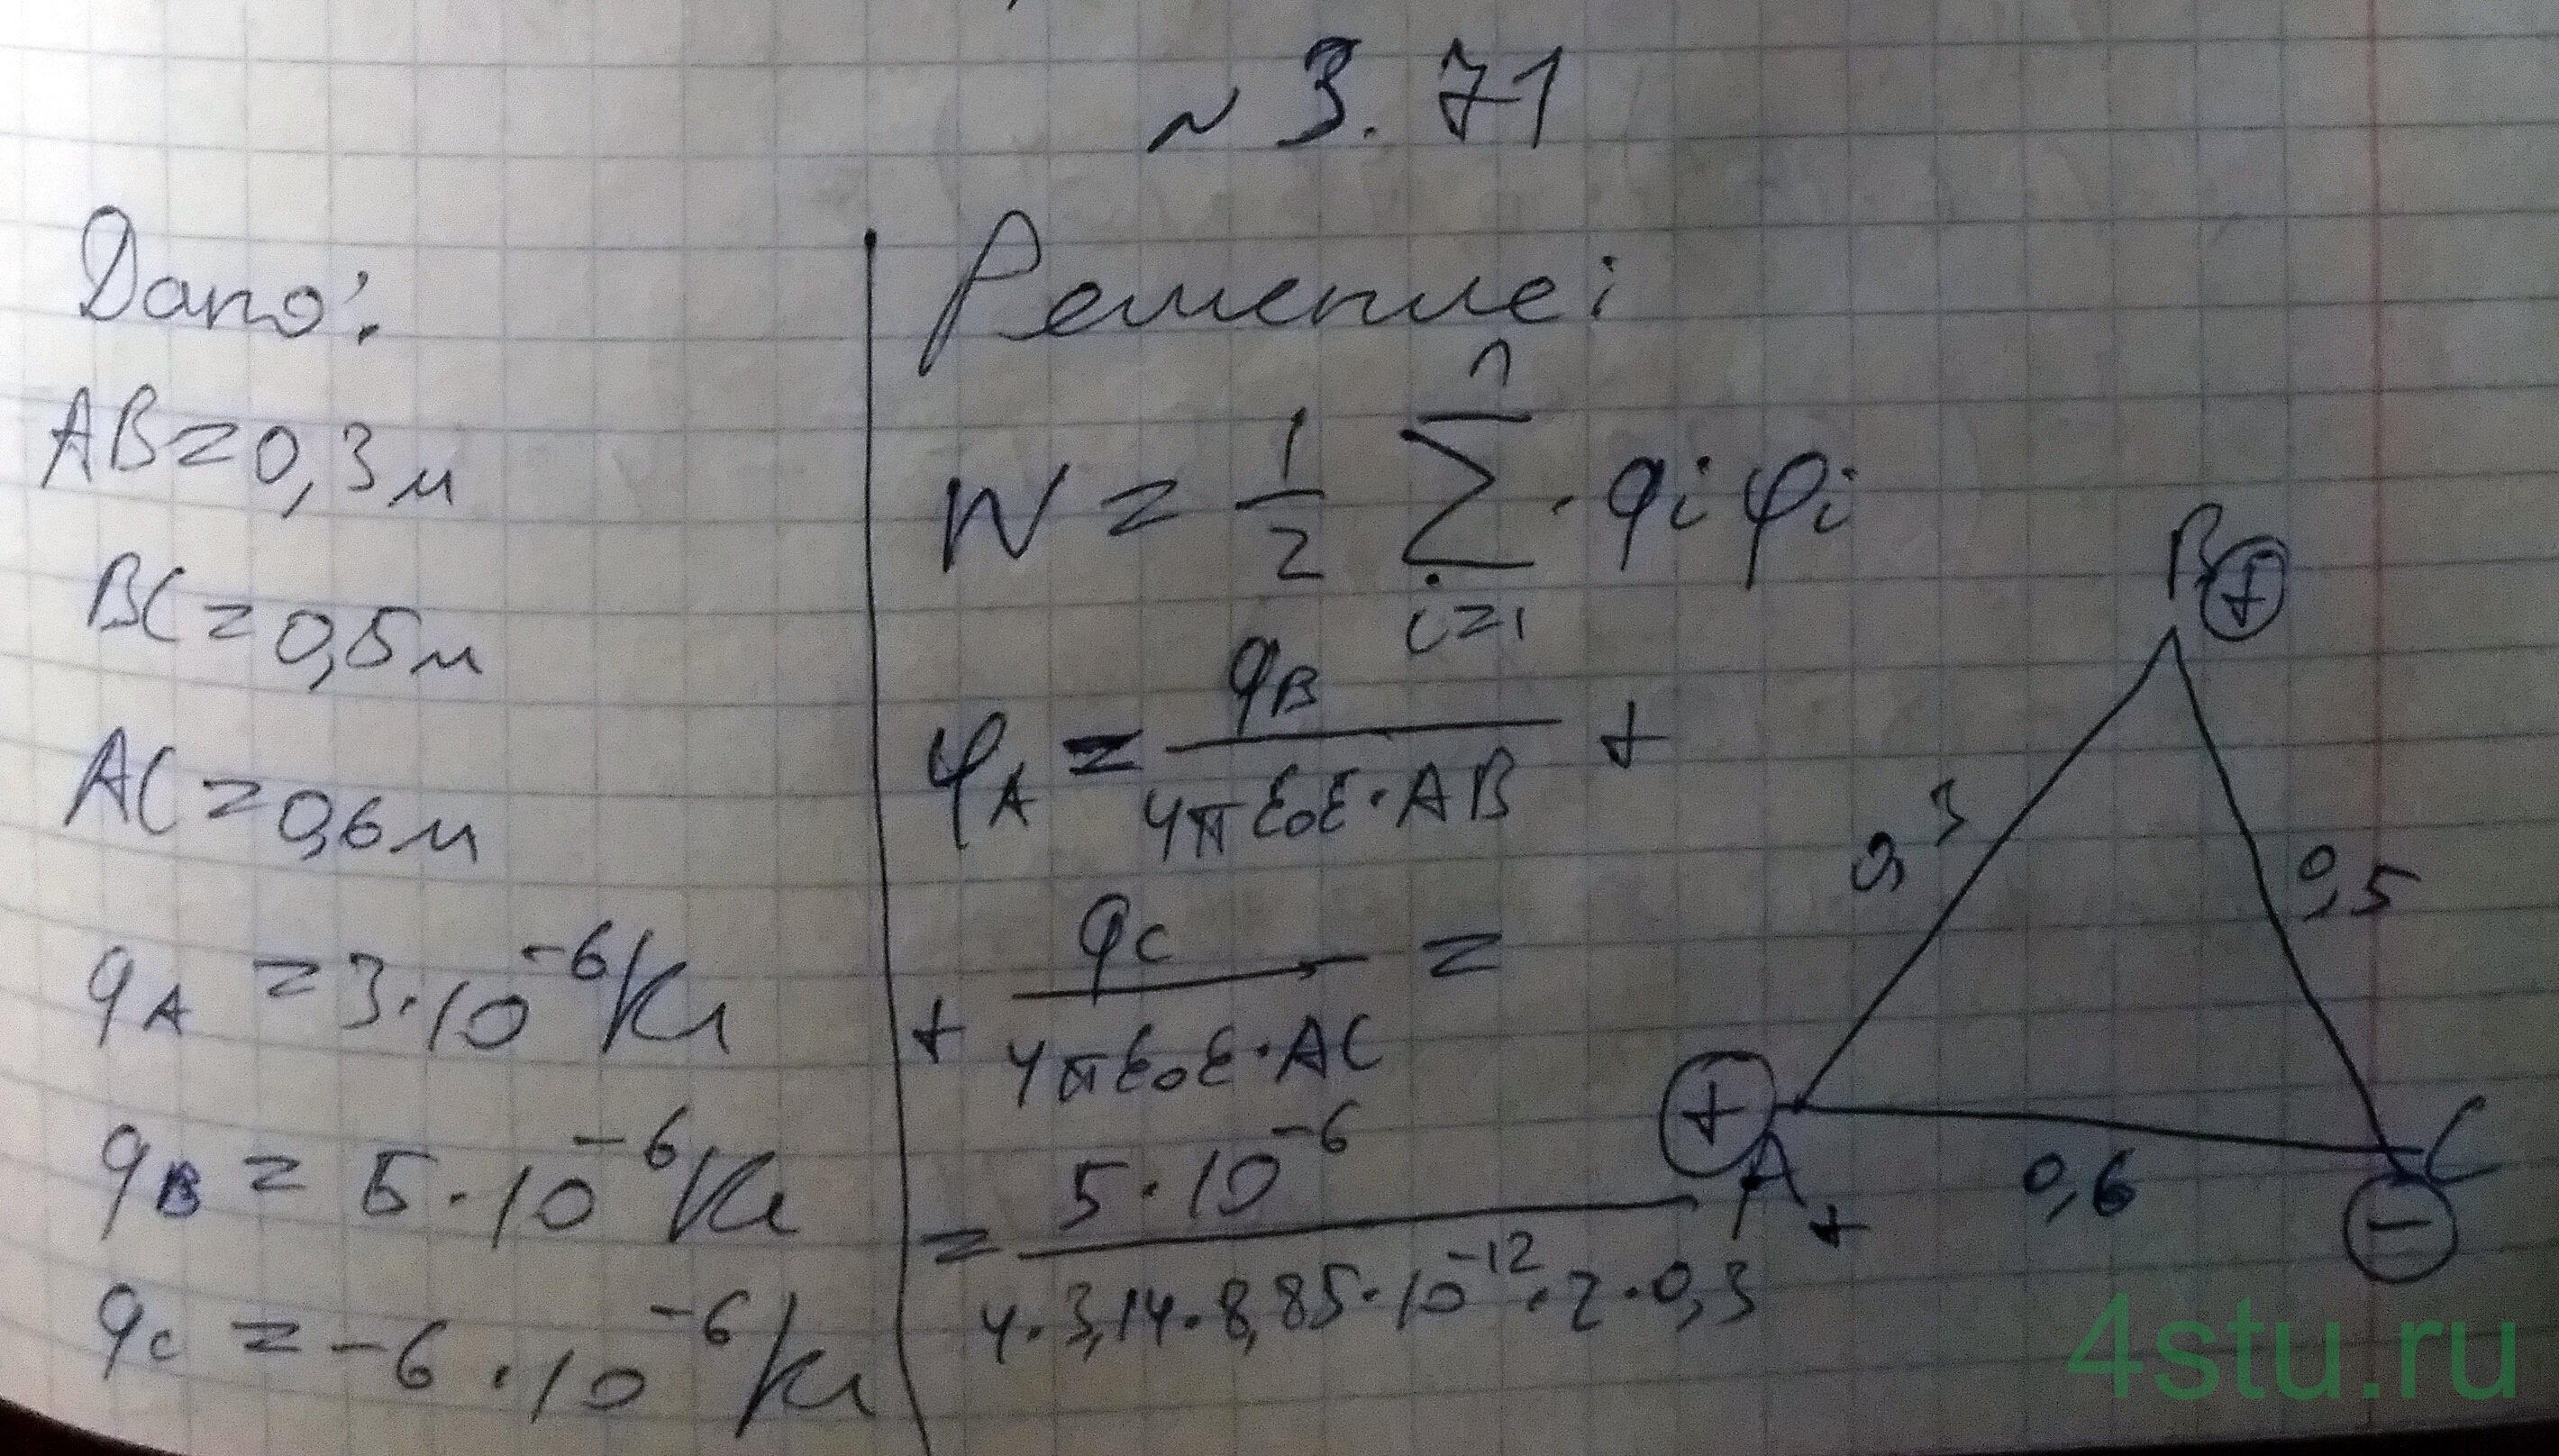 № 3.71
Дано:
AB = 0,3 м
BC = 0,5 м
AC = 0,6 м
qA = 3·10^-6 Кл
qB = 5·10^-6 Кл
qC = -6·10^-6 Кл
Решение:
W = 1/2 n∑i=1 · qi φi
φA = qB/(4πε0ε·AB) +
+ qC/(4πε0ε·AC) =
= 5·10^-6/(4·3,14·8,85·10^-12·2·0,3) +
B +
0,3
0,5
+ A
0,6
C −
4stu.ru